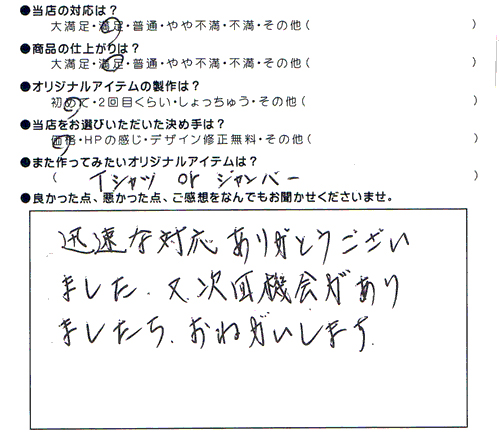 ●当店の対応は？
大満足・満足・普通・やや不満・不満・その他（　　　）
●商品の仕上がりは？
大満足・満足・普通・やや不満・不満・その他（　　　）
●オリジナルアイテムの製作は？
初めて・2回目くらい・しょっちゅう・その他（　　　）
●当店をお選びいただいた決め手は？
価格・HPの感じ・デザイン修正無料・その他（　　　）
●また作ってみたいオリジナルアイテムは？
（　Tシャツ or ジャンバー　）
●良かった点、悪かった点、ご感想をなんでもお聞かせくださいませ。
迅速な対応ありがとうござい
ました。又次回機会があり
ましたら、おねがいします。